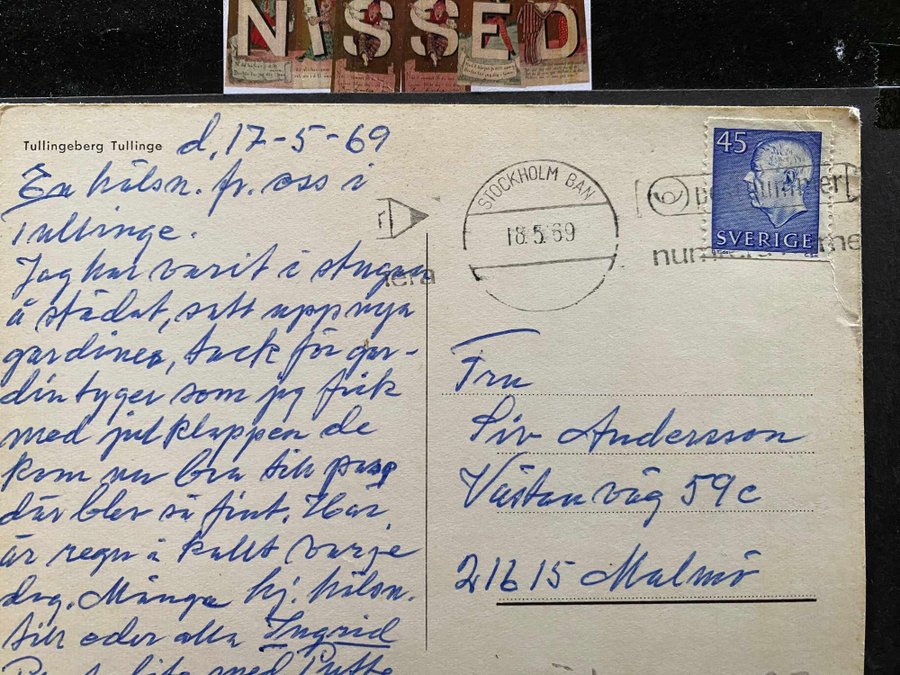 NISSED
Tullingeberg Tullinge
d, 17-5-69
En hälsn. fr. oss i
Tullinge.
Jag har varit i stugan
å städat, satt upp nya
gardiner, tack för gar-
dintyger som jag fick
med julklappen de
kom väl bra till pass
där blev så fint. Här
är regn å kallt varje
dag. Många hj. hälsn.
till eder alla Ingrid
STOCKHOLM BAN
18.5.69
45
SVERIGE
Fru
Siv Andersson
Västanväg 59c
21615 Malmö